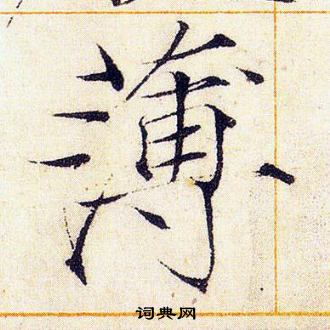 薄
词典网